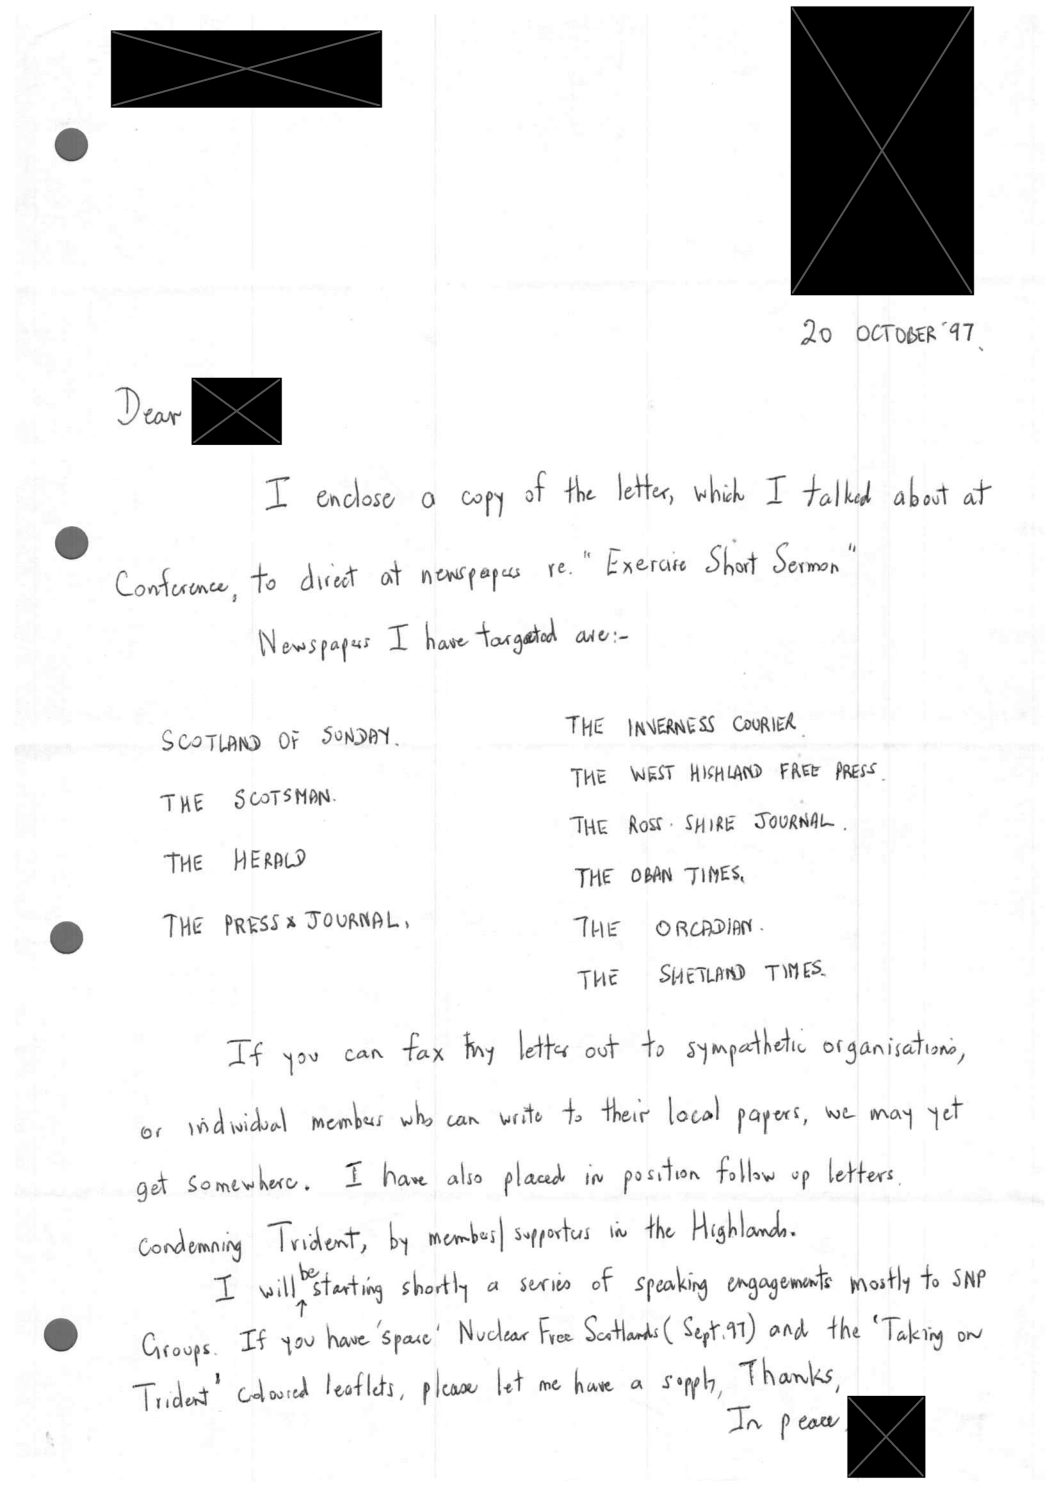 20 OCTOBER '97.
Dear
I enclose a copy of the letter, which I talked about at
Conference, to direct at newspapers re. "Exercise Short Sermon"
Newspapers I have targeted are:-
SCOTLAND OF SUNDAY.
THE SCOTSMAN.
THE HERALD
THE PRESS & JOURNAL.
THE INVERNESS COURIER.
THE WEST HIGHLAND FREE PRESS.
THE ROSS-SHIRE JOURNAL.
THE OBAN TIMES.
THE ORCADIAN.
THE SHETLAND TIMES.
If you can fax my letter out to sympathetic organisations,
or individual members who can write to their local papers, we may yet
get somewhere. I have also placed in position follow up letters
condemning Trident, by members/supporters in the Highlands.
I will be starting shortly a series of speaking engagements mostly to SNP
Groups. If you have 'spare' Nuclear Free Scotlands (Sept.97) and the 'Taking on
Trident' coloured leaflets, please let me have a supply, Thanks,
In peace,